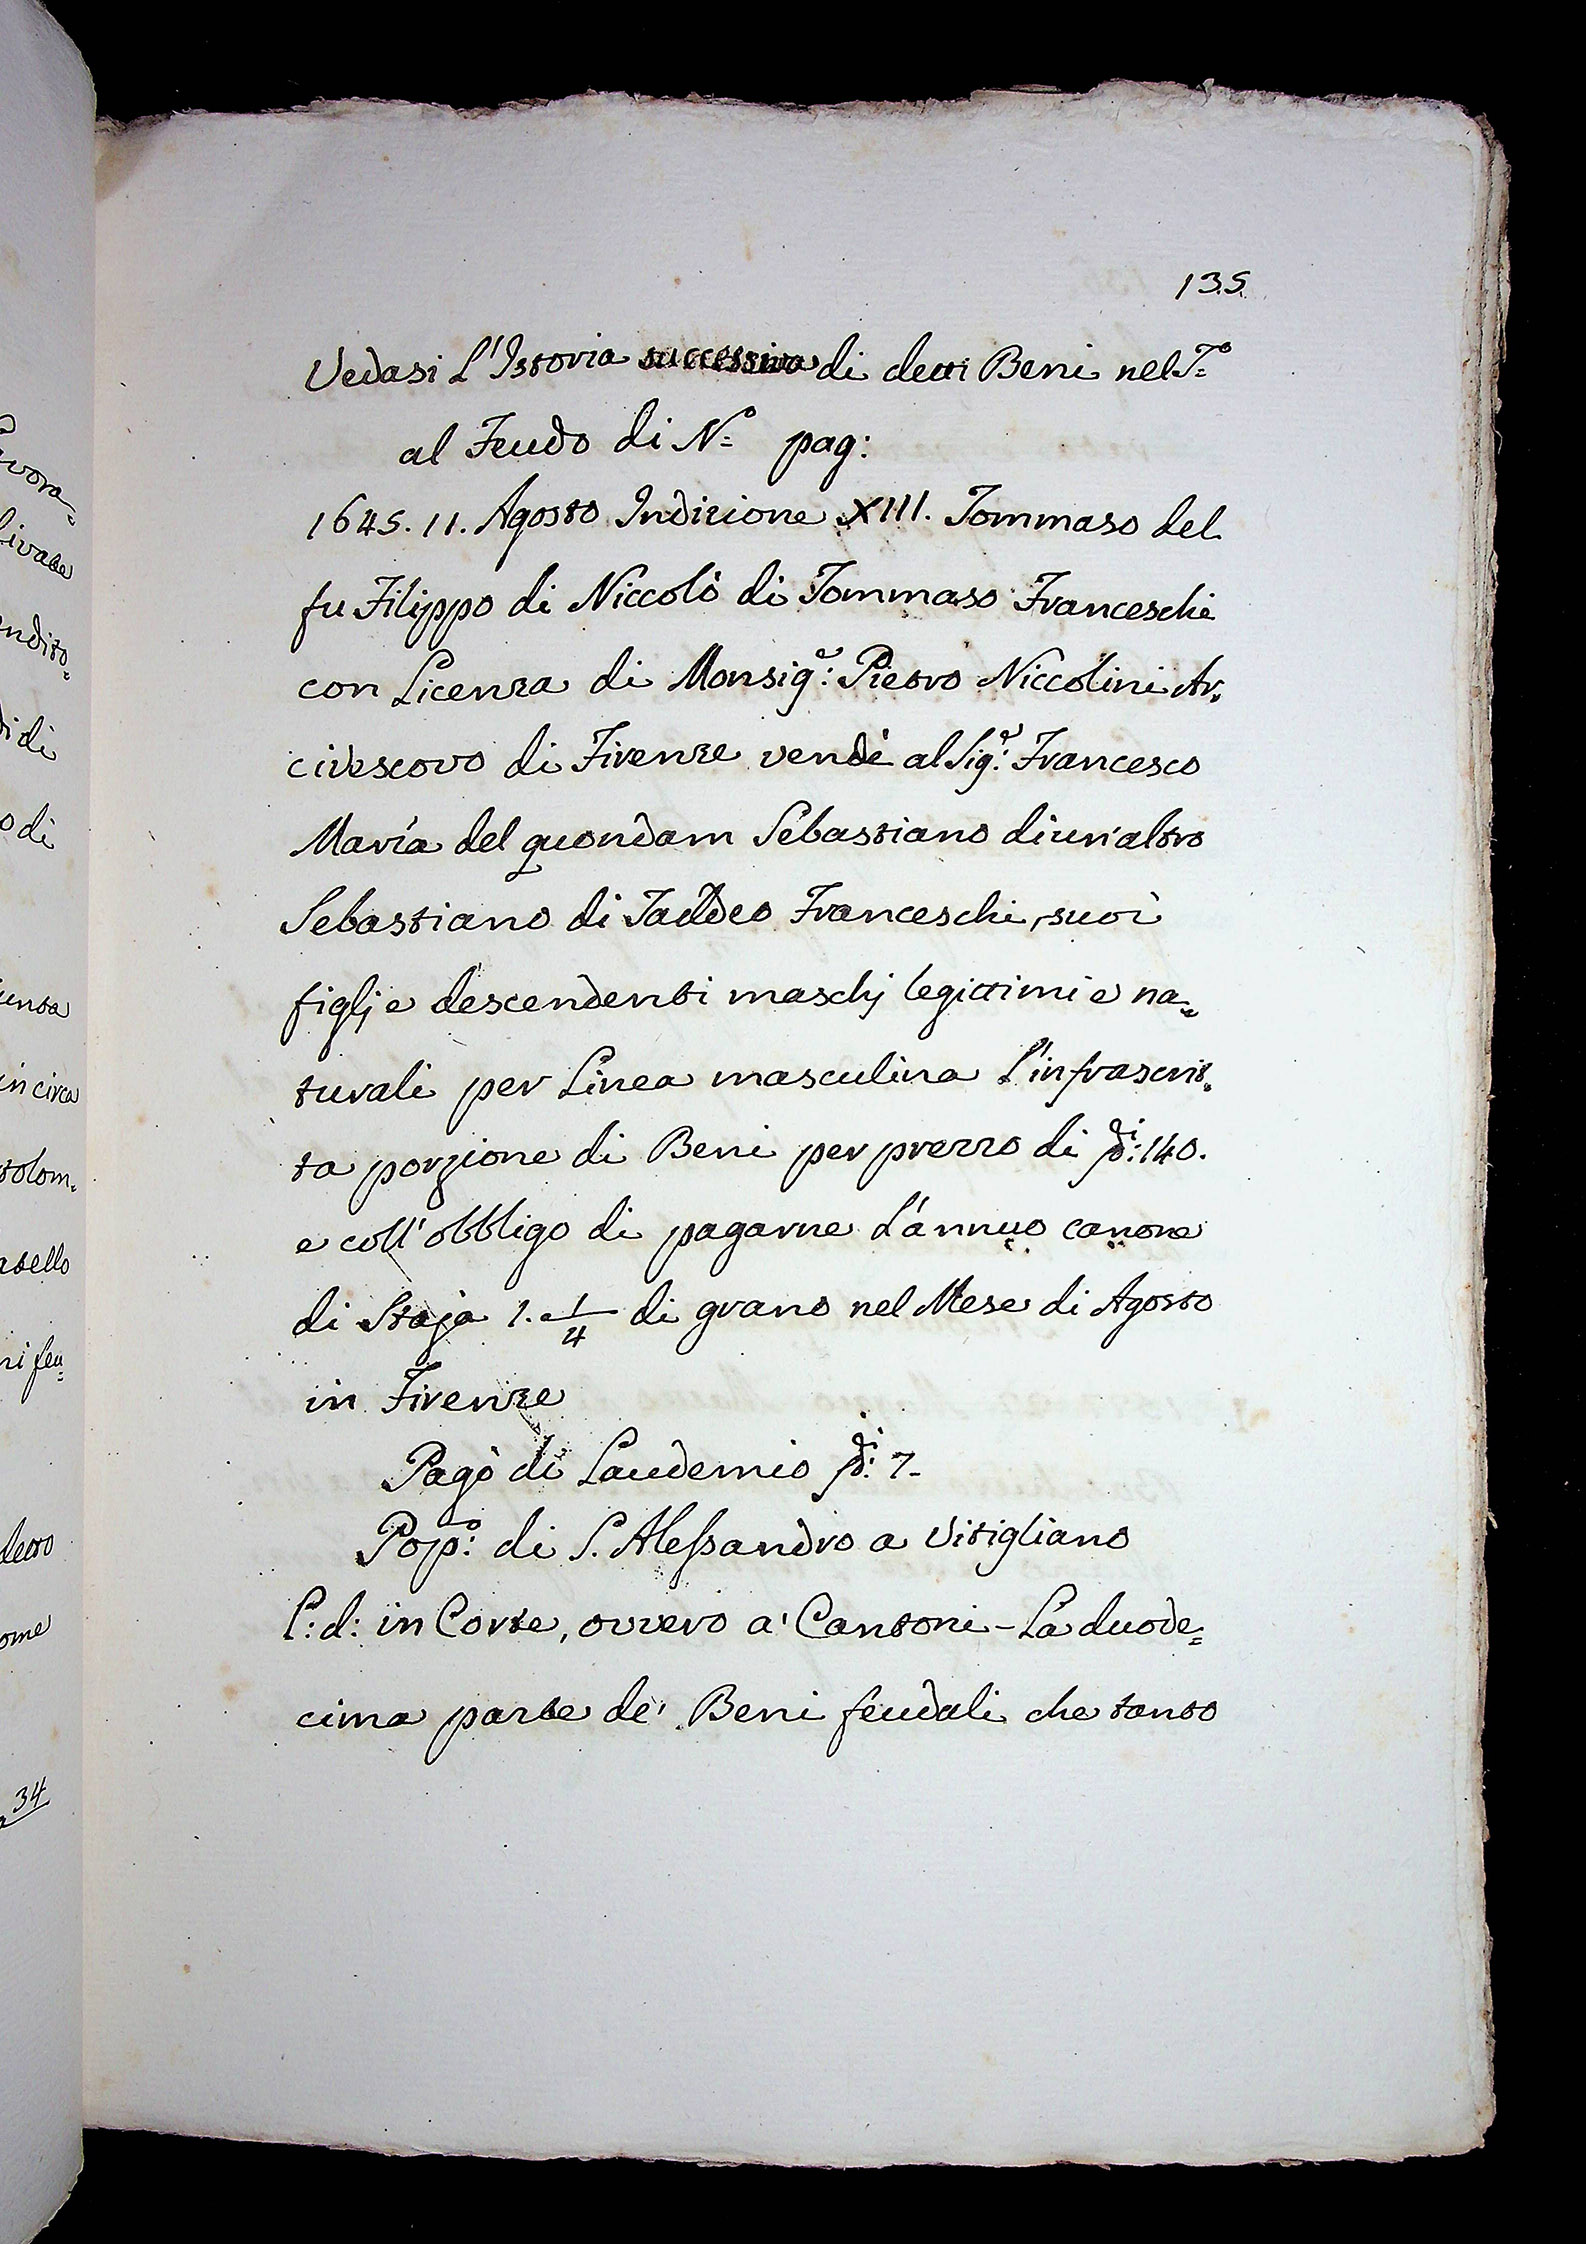 135.
Vedasi L'Istoria successiva di detti Beni nel T.º
al Feudo di N.º pag:
1645. 11. Agosto Indizione XIII. Tommaso del
fu Filippo di Niccolò di Tommaso Franceschi
con Licenza di Monsig.e: Pietro Niccolini Ar=
civescovo di Firenze vendè al Sig.e: Francesco
Maria del quondam Sebastiano di un'altro
Sebastiano di Taddeo Franceschi, suoi
figlj e descendenti maschj legittimi e na=
turali per Linea masculina l'infrascrit=
ta porzione di Beni per prezzo di di: 140.
e coll'obbligo di pagarne l'annuo canone
di Staja 1. 1/4 di grano nel Mese di Agosto
in Firenze
Pagò di Laudemio di: 7.
Pop.º: di S. Alessandro a Vitigliano
L: d: in Corte, ovvero a' Cantoni - La duode=
cima parte de' Beni feudali che tanto
vora=
livate
ndito=
di di
o di
in circa
tolom=
tello
ni feu=
detto
ome
34